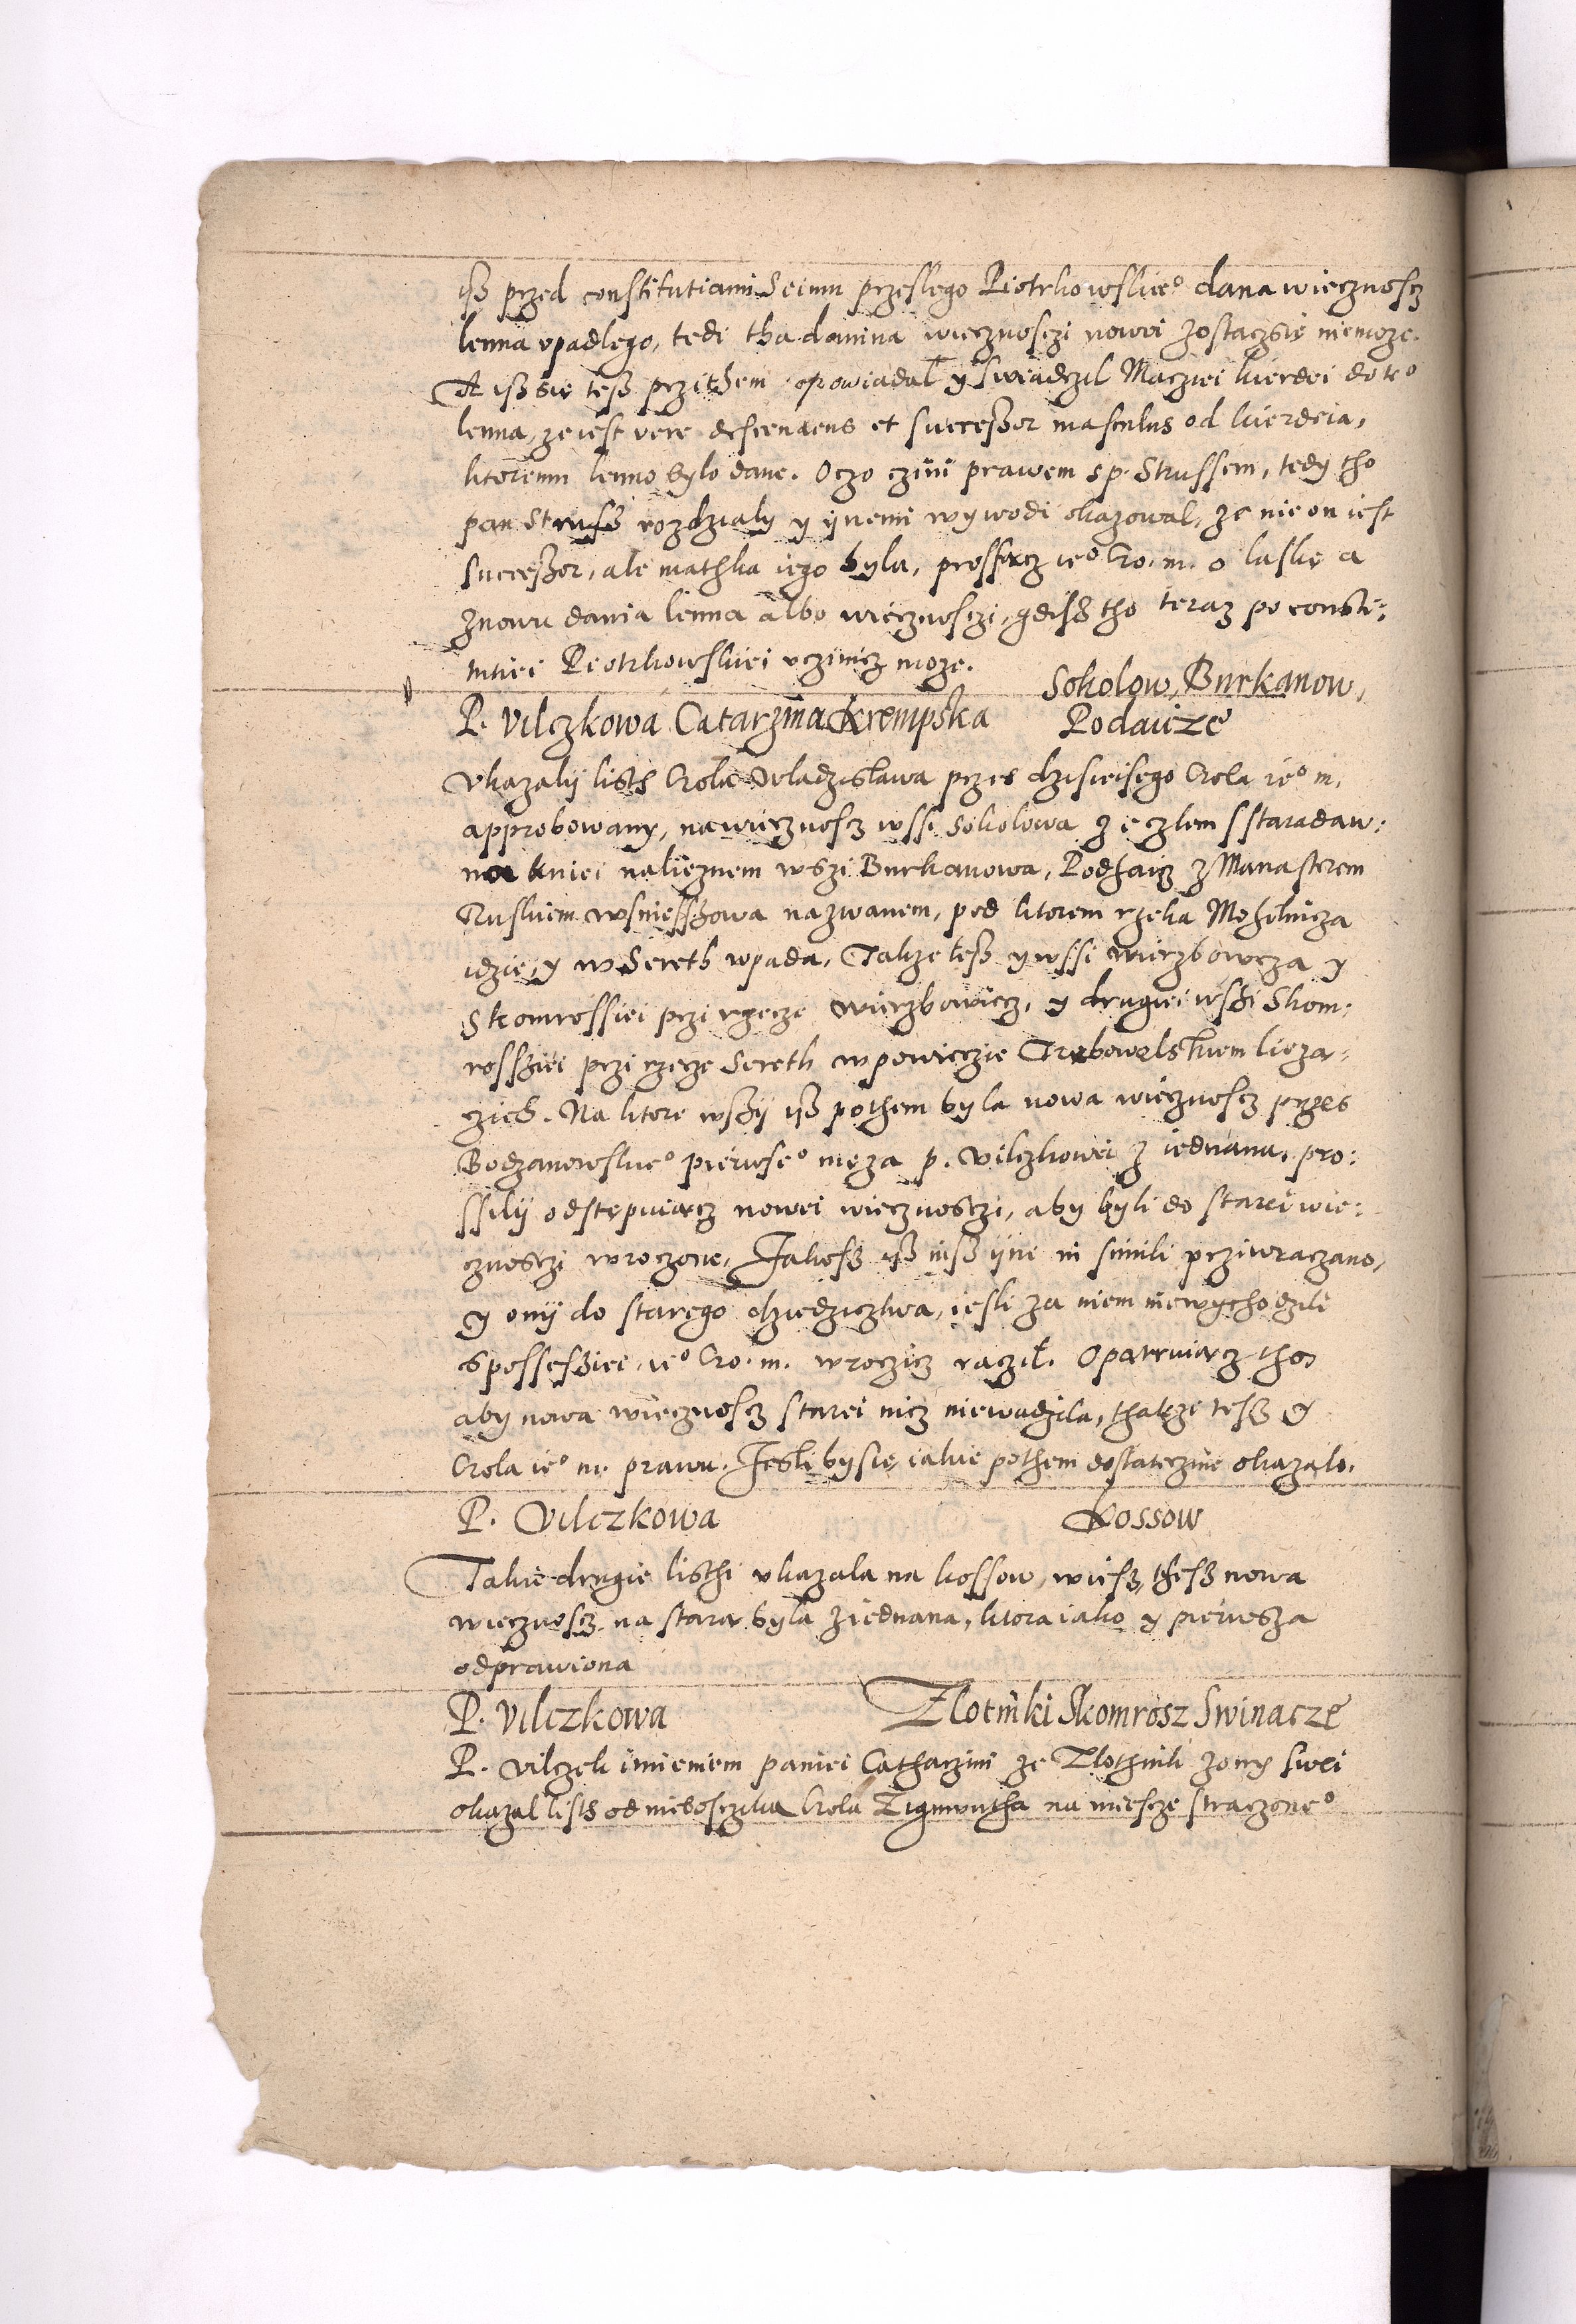 isz przed constitutiami Seimu przeslego Piotrkowskieo dana wiecznoscz
lenna upadlego, tedi tha danina wiecznosczi nowei zostaczsię niemoze.
A isz się tesz przithem opowiadal y swiadczil Macziei kierdei do teo
lenna, ze iest vere descendens et successor masculus od kierdeia,
ktoremu lenno bylo dane. Oczo czini prawem s p. Strussem, tedy tho
pan Strusz rozdzialy y ijnemi wywodi okazowal, ze nie on iest
successor, ale mathka iego byla, prosząncz ieo Cro. m. o laskę a
znowu dania lenna albo wiecznosczi, gdisz tho teraz po consti:
tutiei Piotrkowskiei uczinicz moze.
P. Vilczkowa Catarzina Krempska
Sokolow, Burkanow,
Podaicze
Vkazalij listh Crola Wladzislawa przes dzisieisego Crola ieo m.
approbowany, na wiecznoscz wssi Sokolowa z czlem s staradaw:
na kniei nalieznem wszi Burkanowa, Podhaicz z Manasterem
Ruskiem nazwanem, pod ktorem rzeka Moholnicza
idzie, y w Sereth wpada. Takze tesz y wssi Wierzbowcza y
Skomrossiei przi rzecze Wierzbowiecz, y drugiei wszi Skom:
rossziei przi rzecze Sereth w powieczie Trębowelskiem lieza:
czich. Na ktore wszij isz pothem byla nowa wiecznoscz przes
Bodzanowskieo pierwseo męza p. Vilczkowei z iednana, pro:
ssilij odstępuiącz nowei wiecznosczi, aby byli do starei wie:
cznosczi wroczone, Jakosz isz insz ijne in simili prziwraczano,
y onij do starego dziedzicztwa, iesli za niem niewychodzili
s possessziei, ieo Cro. m. wroczicz raczil. Opatruiącz tho
aby nowa wiecznoscz starei nicz niewadzila, thakze tesz y
Crola ieo m. prawu. Jesli by się iakie pothem dostateczine okazalo.
P. Vilczkowa
Kossow
Takie drugie listhi ukazala na kossow, wiesz, thesz nowa
wiecznoscz na starą byla ziednana, ktora iako y pierwsza
odprawiona
P. Vilczkowa
Zlotniki Skomrosz Swinacze
P. Vilczek imieniem paniei Catharzini ze Zlothnik zony swei
okazal listh od nieboszczika Crola Zigmuntha na miescze straczoneo